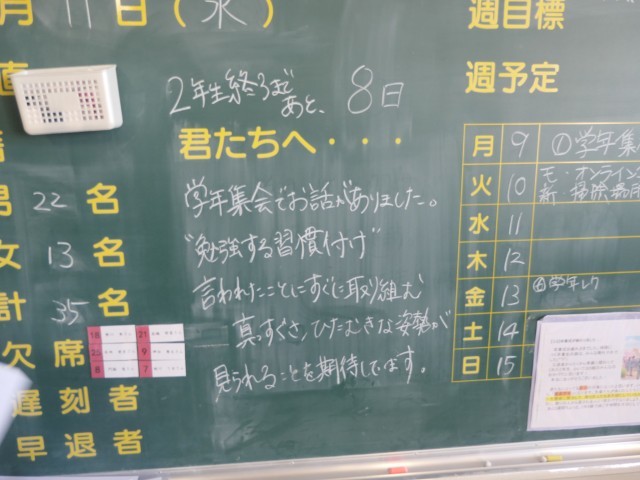 月11日(水)
週目標
直
2年生終了まで
あと、8日
週予定
君たちへ・・・
学年集会でお話がありました。
"勉強する習慣付け"
言われたことにすぐに取り組む
真っすぐさ、ひたむきな姿勢が
見られることを期待しています。
男 22 名
女 13 名
計 35 名
欠席
遅刻者
早退者
月 9 ①学年集
火 10 モ・オンライン
水 11
木 12
金 13 ④学年レク
土 14
日 15